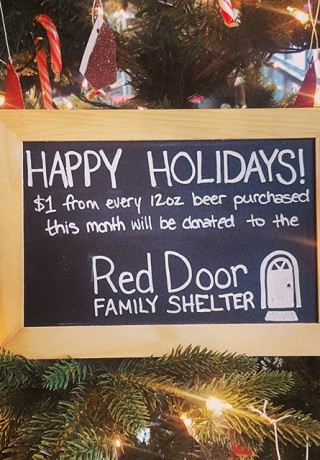 HAPPY HOLIDAYS!
$1 from every 12oz beer purchased
this month will be donated to the
Red Door
FAMILY SHELTER